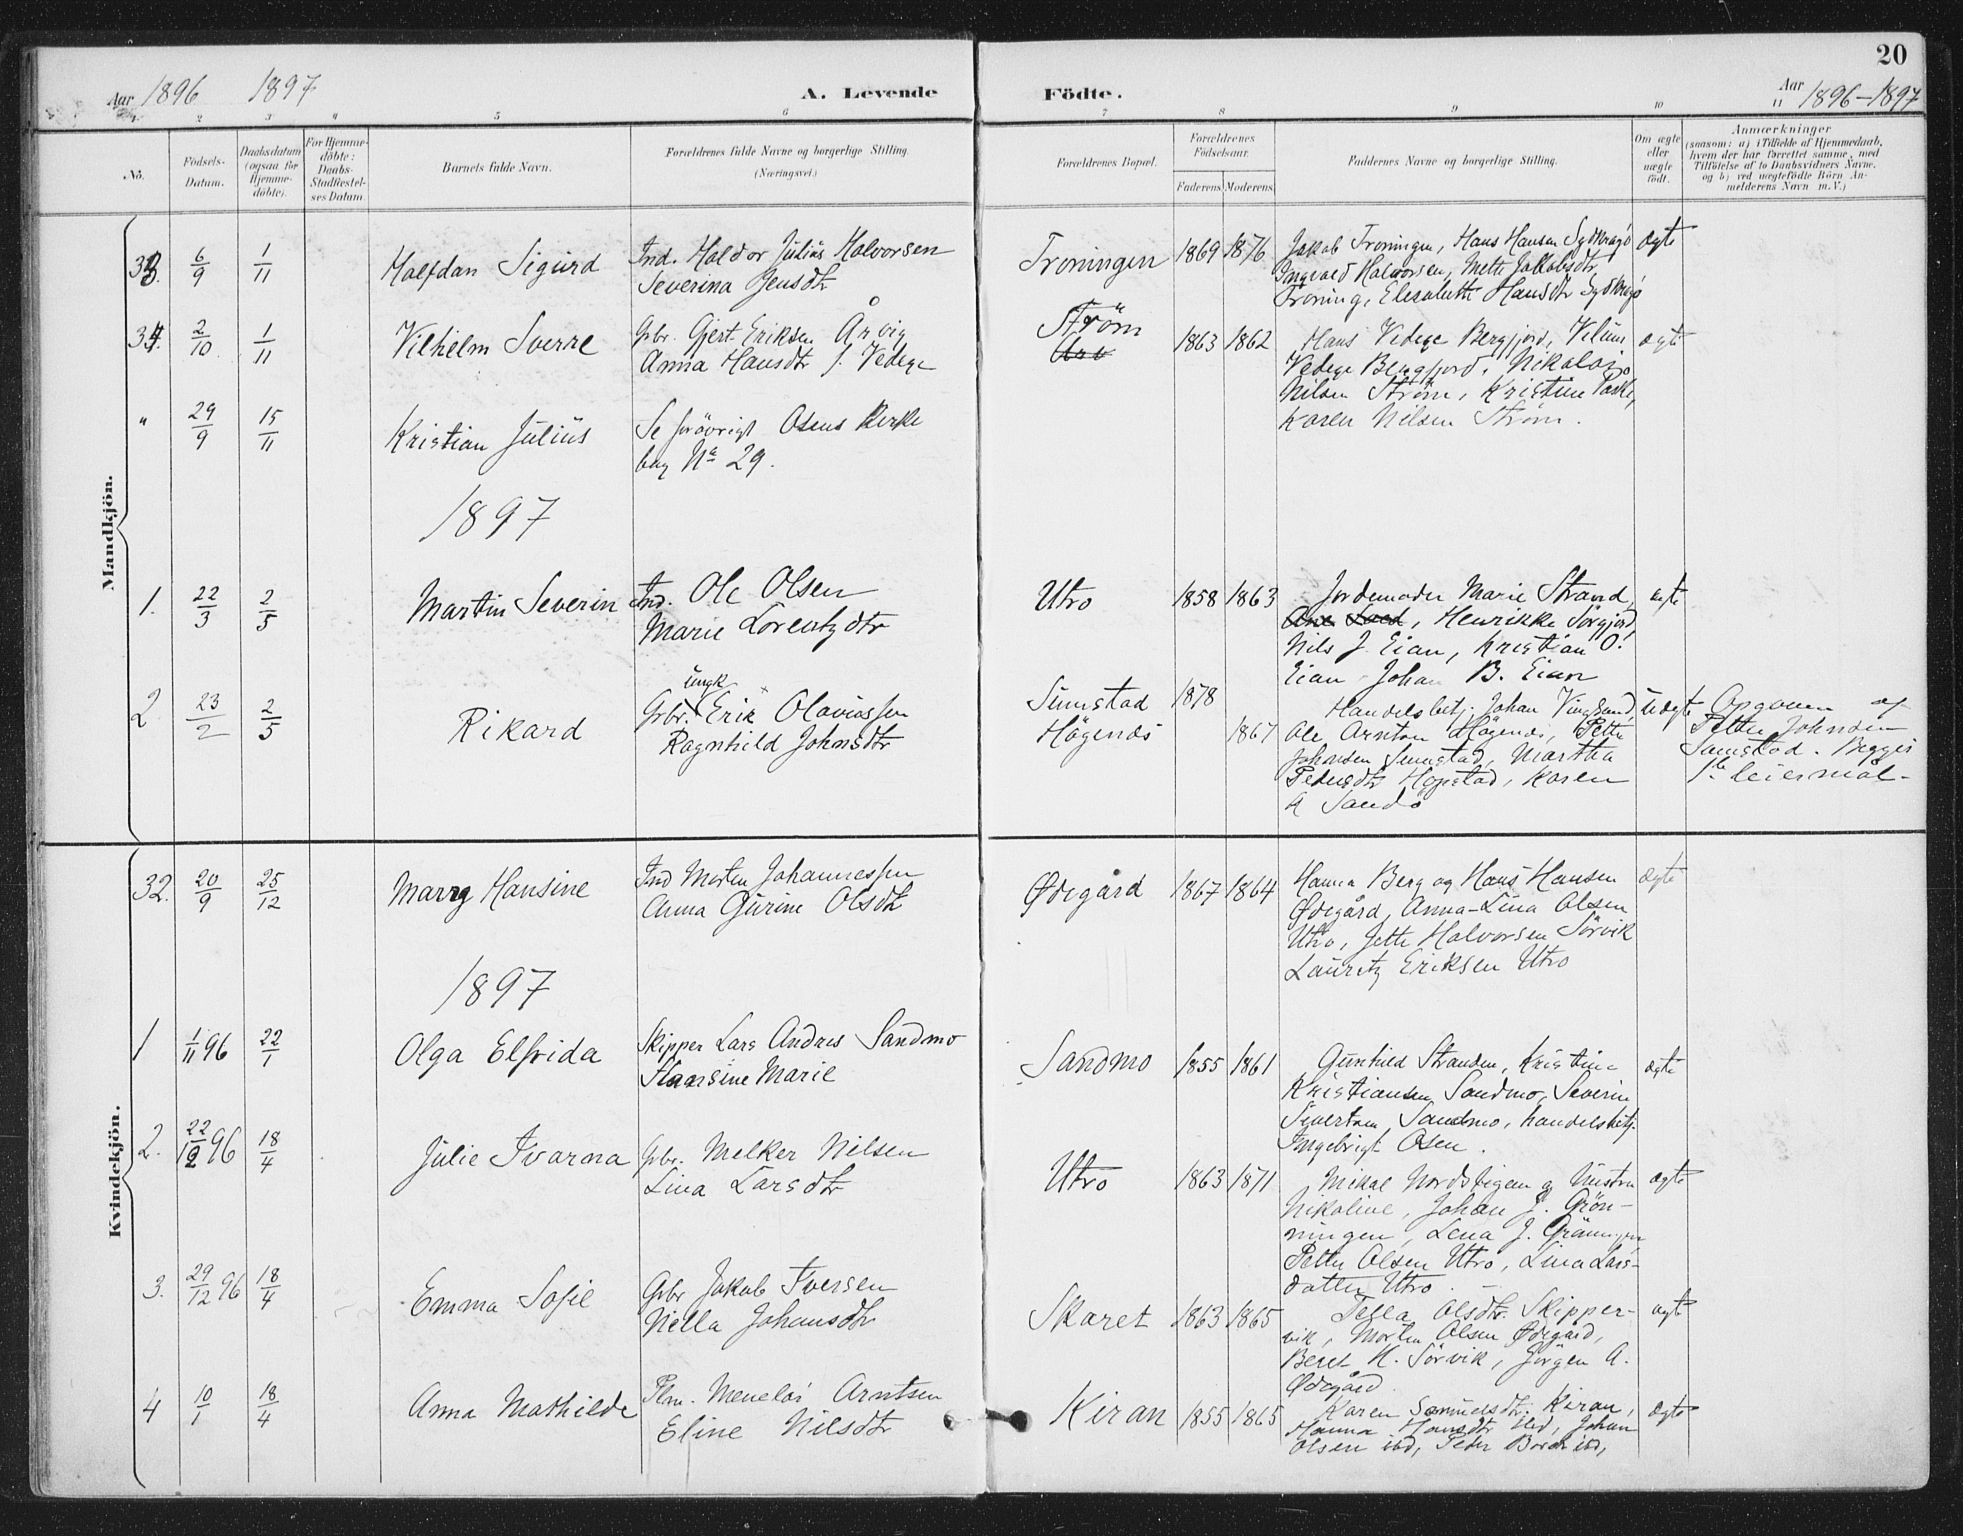 20
Aar 1896 1897 A. Levende Födte. Aar 1896-1897
1 2 3 4 5 6 7 8 9 10 11
No. Födsels-Datum. Daabsdatum (ogsaa for Hjemmedöbte). For Hjemmedöbte: Daabs-Stadfæstelses Datum Barnets fulde Navn. Forældrenes fulde Navne og borgerlige Stilling. (Næringsvei.) Forældrenes Bopæl. Forældrenes Födselsaar. Faderens Moderens Faddernes Navne og borgerlige Stilling. Om ægte eller uægte födt. Anmærkninger (saasom: a) i Tilfælde af Hjemmedaab, hvem der har forrettet samme, med Tilföielse af to Daabsvidners Navne. og b) ved uægtefödte Börn Anmelderens Navn m.V.)
Mandkjön.
33. 6/9 1/11 Halfdan Sigurd Ind. Haldor Julius Halvorsen Troningen 1869 1876 Jakob Troningen, Hans Hansen Sydkragö ægte
Severina Jensdtr Ingvald Halvorsen, Mette Jakobsdtr
Troning, Elisabeth Hansdtr Sydkragö
34. 2/10 1/11 Vilhelm Sverre Gbr. Gjert Eriksen Årvig Strøm 1863 1862 Hans Vedege Bergfjord, ægte
Anna Hansdtr f. Vedege Vedege Bergfjord, Nikolai
Nilsen Strøm, Kristine
Karen Nilsen Strøm.
" 29/9 15/11 Kristian Julius Se forövrigt Osens Kirke
bog No 29.
1897
1. 22/3 2/5 Martin Severin Ind. Ole Olsen Utro 1858 1863 Jordemoder Marie Strand, ægte
Marie Lorentzdtr , Henrikke Sörgjerd,
Nils J. Eian, Kristian O.
Eian Johan B. Eian
2 23/2 2/5 Rikard Gbr. ungk Erik Olaviussen Sumstad 1878 Handelsbetj. Johan Vingsand, uægte Opgaven af
Ragnhild Johnsdtr Högenæs 1867 Ole Arntsen Högenæs, Petter Petter Johnsen
Johnsen Sumstad, Martha Sumstad. Begges
Pedersdtr Hopstad, Karen 1ste leiermål-
A Sandö
Kvindekjön.
32. 20/9 25/12 Marry Hansine Ind Morten Johannessen Ødegård 1867 1864 Hanna Berg og Hans Hansen ægte
Anna Gurine Olsdtr Ødegård, Anna-Lina Olsen
Utro, Jette Halvorsen Sörvik
Lauritz Eriksen Utro
1897
1 1/11 96 22/1 Olga Elfrida Skipper Lars Andres Sandmo Sandmo 1855 1861 Gunhild Stranden, Kristine ægte
Hansine Marie Kristiansen Sandmo, Severin
Sivertsen Sandmo, handelsbetj.
Ingebrigt Osen.
2. 22/12 96 18/4 Julie Ivarna Gbr. Melker Nilsen Utro 1863 1871 Mikal Nordstigen og Hustru ægte
Lina Larsdtr Nikoline, Johan J. Grön-
ningen, Lena J. Gröningen
Petter Olsen Utro, Lina Lars-
datter Utro.
3. 29/12 96 18/4 Emma Sofie Gbr Jakob Iversen Skaret 1863 1865 Olsdtr. Skipper- ægte
Nella Johansdtr vik, Morten Olsen Ødegård,
Beret H. Sörvik, Jörgen A.
Ødegård.
4 10/1 18/4 Anna Mathilde Plm. Menelai Arntsen Kiran 1855 1865 Karen Samuelsdtr. Kiran, ægte
Eline Nilsdtr Hanna Hansdtr ibd, Johan
Olsen ibd, Peter ibd,